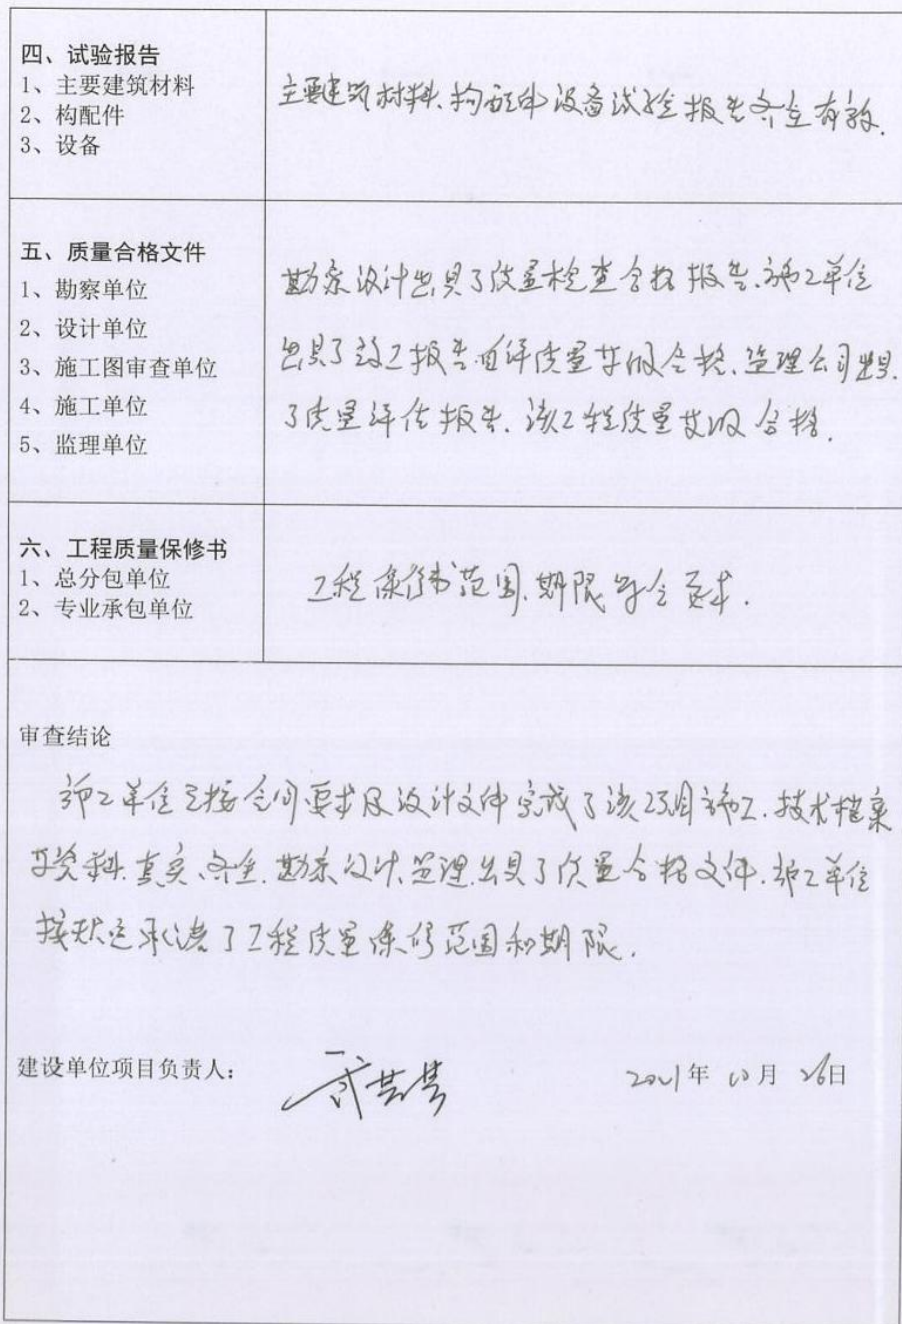 四、试验报告
1、主要建筑材料
2、构配件
3、设备
主要建筑材料、构配件设备试验报告齐全有效.
五、质量合格文件
1、勘察单位
2、设计单位
3、施工图审查单位
4、施工单位
5、监理单位
勘察设计出具了质量检查合格报告.施工单位
出具了竣工报告自评质量等级合格.监理公司出具
了质量评估报告.该工程质量等级合格.
六、工程质量保修书
1、总分包单位
2、专业承包单位
工程保修书范围.期限符合要求.
审查结论
施工单位已按合同要求及设计文件完成了该项目施工.技术档案
及资料.真实、齐全.勘察设计.监理.出具了质量合格文件.施工单位
按规定承诺了工程质量保修范围和期限.
建设单位项目负责人:
2021年10月26日